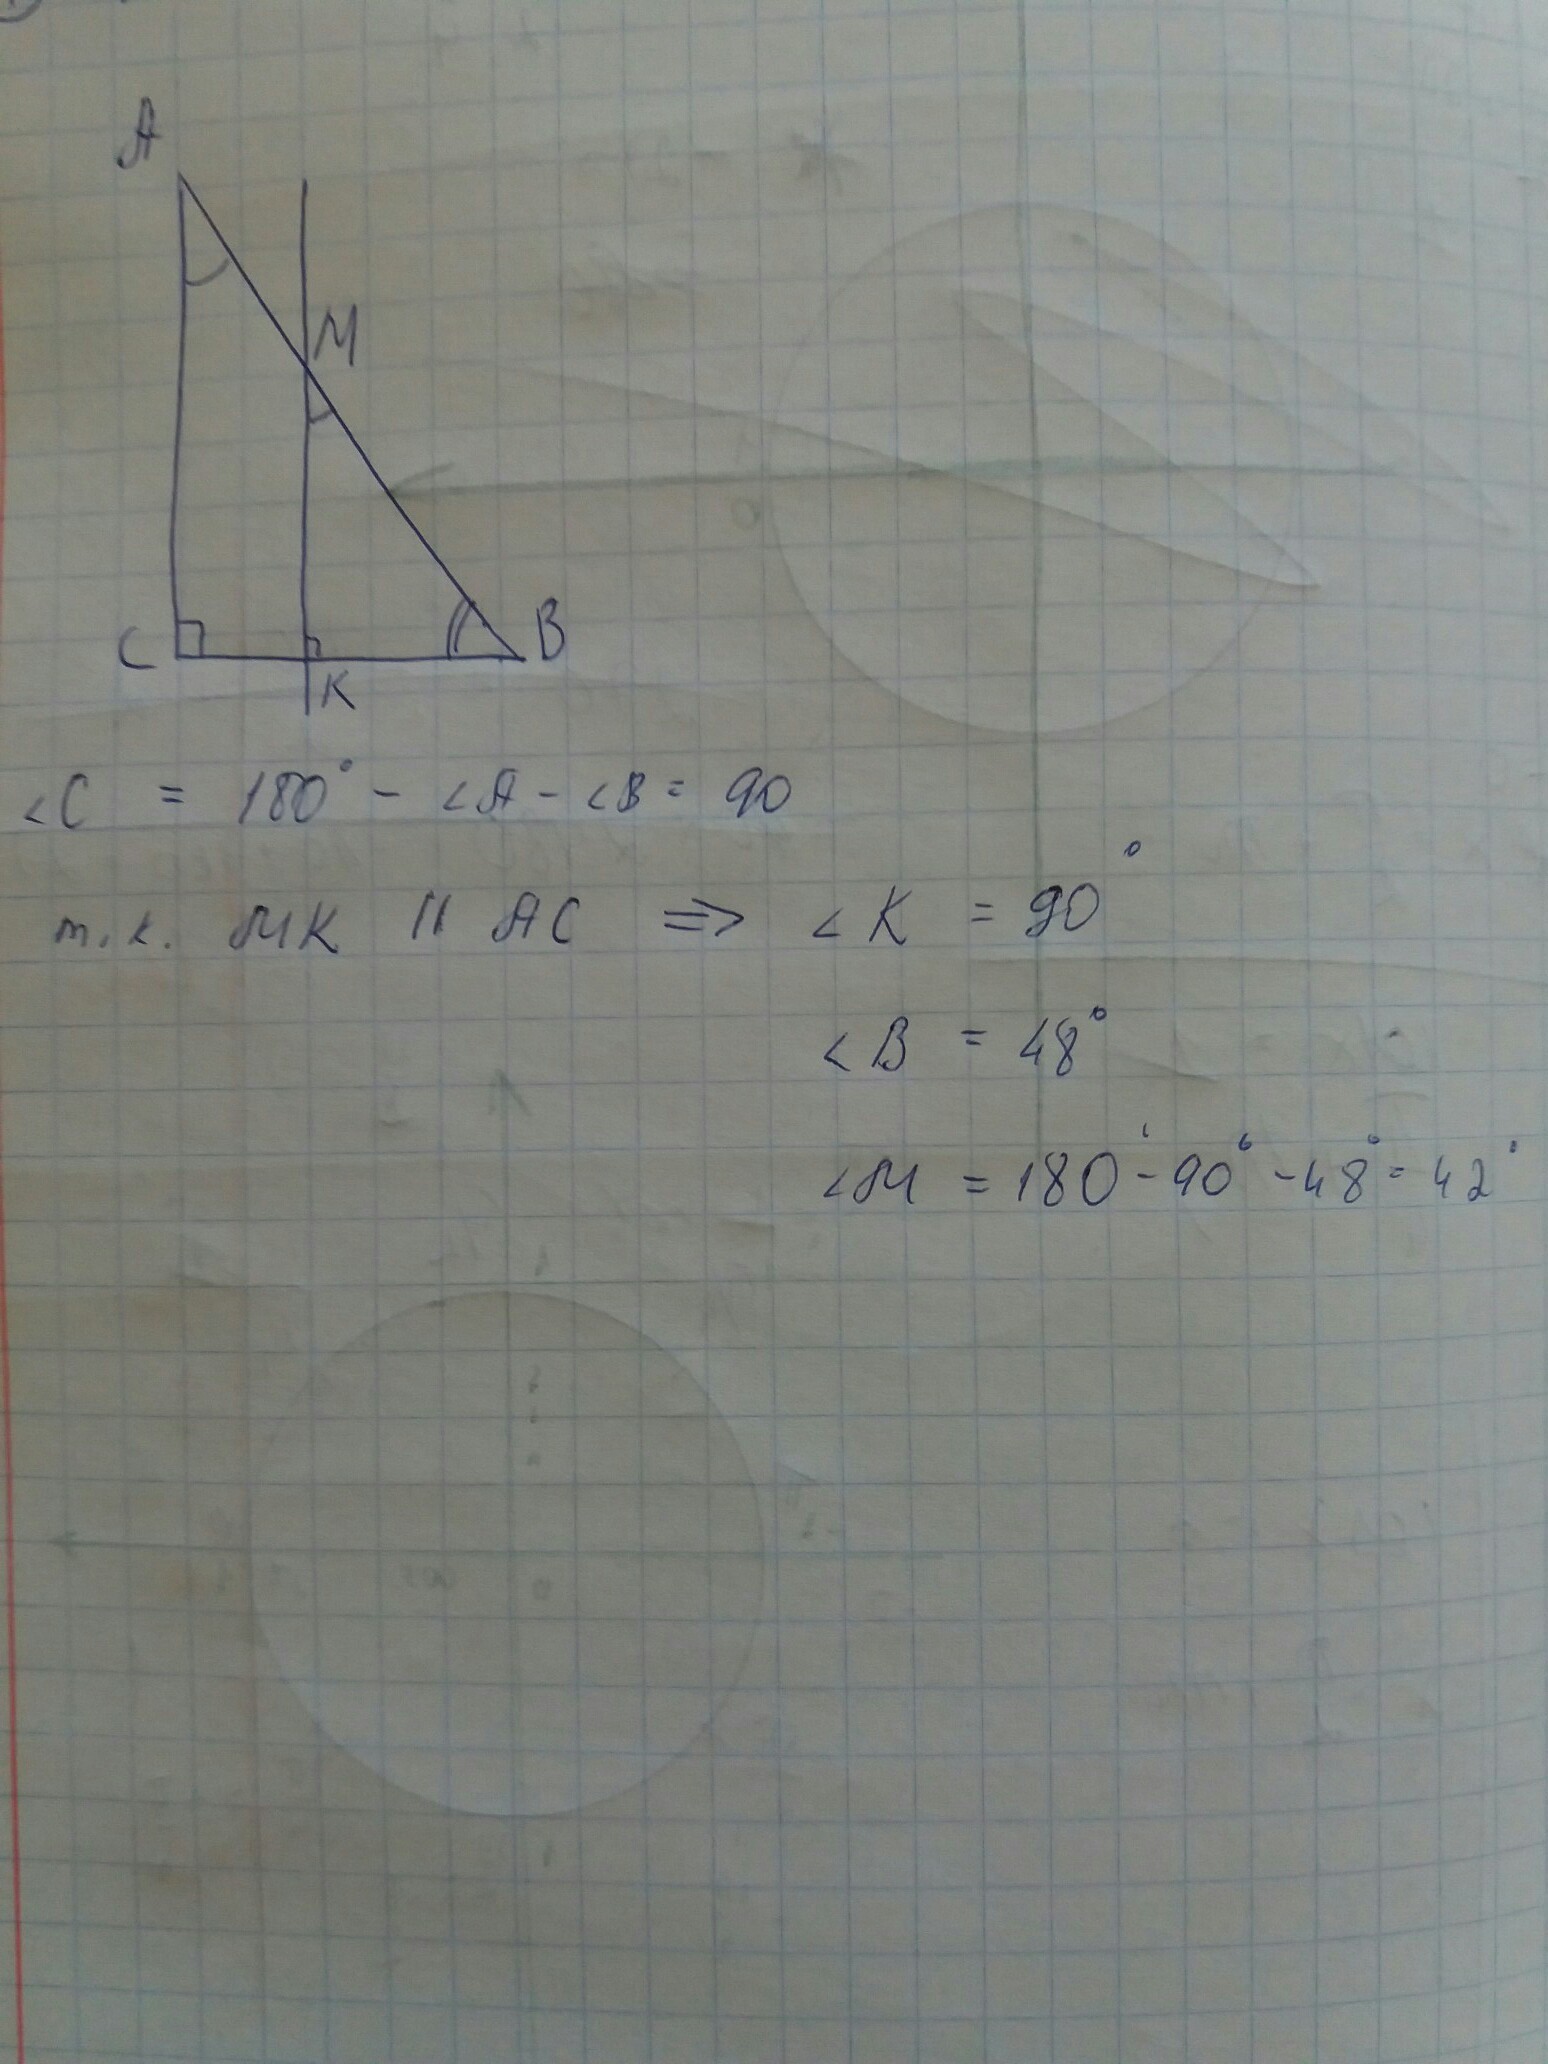 A
M
C
B
K
<C = 180° - <A - <B = 90
т.к. MK || AC => <K = 90°
<B = 48°
<M = 180° - 90° - 48° = 42°